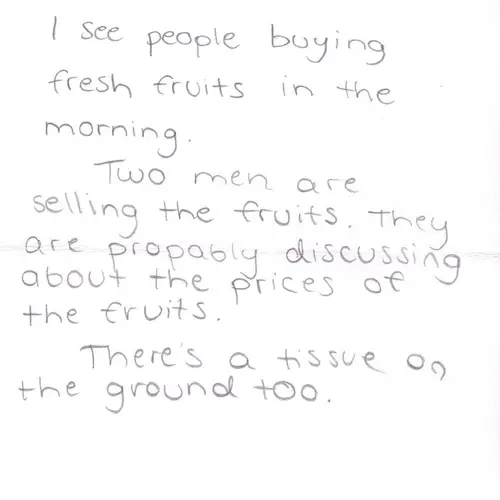 I see people buying
fresh fruits in the
morning.
Two men are
selling the fruits. They
are propably discussing
about the prices of
the fruits.
There's a tissue on
the ground too.